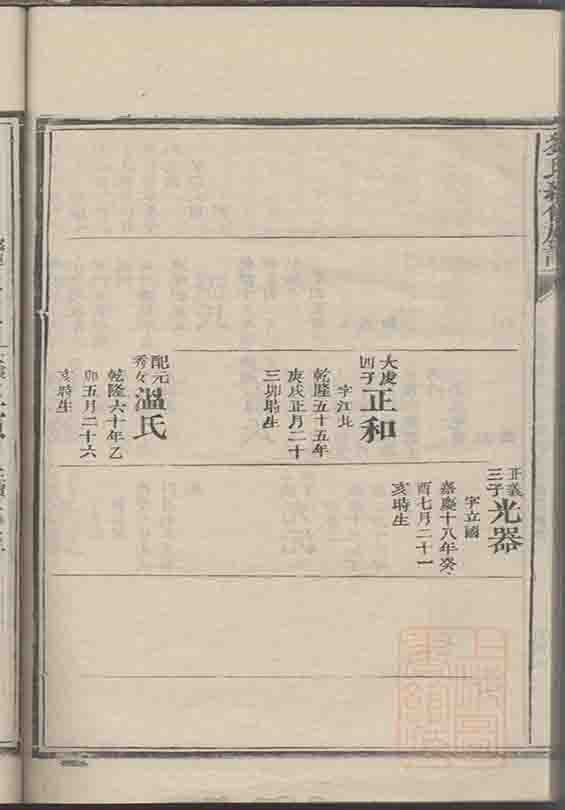 正義
三子
光器
字立國
嘉慶十八年癸
酉七月二十一
亥時生
大慶
四子
正和
字江北
乾隆五十五年
庚戌正月二十
三卯時生
配元
秀女
溫氏
乾隆六十年乙
卯五月二十六
亥時生